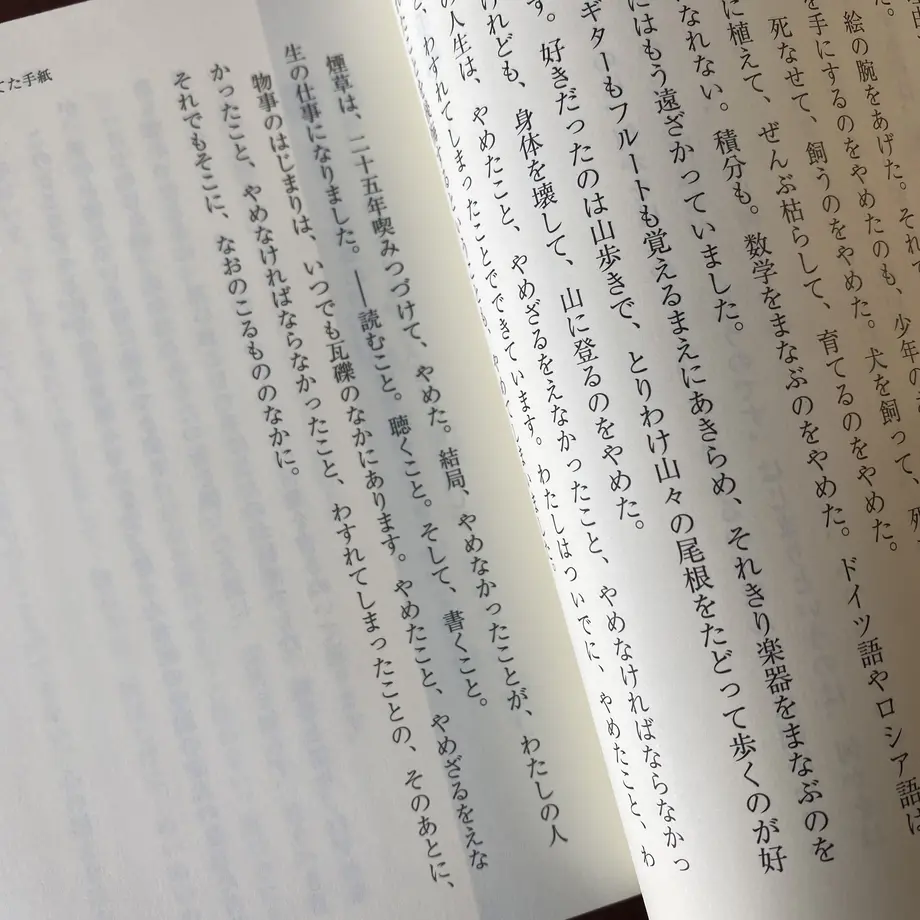 た。
絵の腕をあげた。それ
を手にするのをやめたのも、少年の
死なせて、飼うのをやめた。犬を飼って、死
に植えて、ぜんぶ枯らして、育てるのをやめた。
なれない。積分も。数学をまなぶのをやめた。ドイツ語やロシア語は
にはもう遠ざかっていました。
ギターもフルートも覚えるまえにあきらめ、それきり楽器をまなぶのを
す。好きだったのは山歩きで、とりわけ山々の尾根をたどって歩くのが好
けれども、身体を壊して、山に登るのをやめた。
の人生は、やめたこと、やめざるをえなかったこと、やめなければならなかっ
と、わすれてしまったことでできています。わたしはついでに、やめたこと、わ
てた手紙
煙草は、二十五年喫みつづけて、やめた。結局、やめなかったことが、わたしの人
生の仕事になりました。――読むこと。聴くこと。そして、書くこと。
物事のはじまりは、いつでも瓦礫のなかにあります。やめたこと、やめざるをえな
かったこと、やめなければならなかったこと、わすれてしまったことの、そのあとに、
それでもそこに、なおのこるもののなかに。